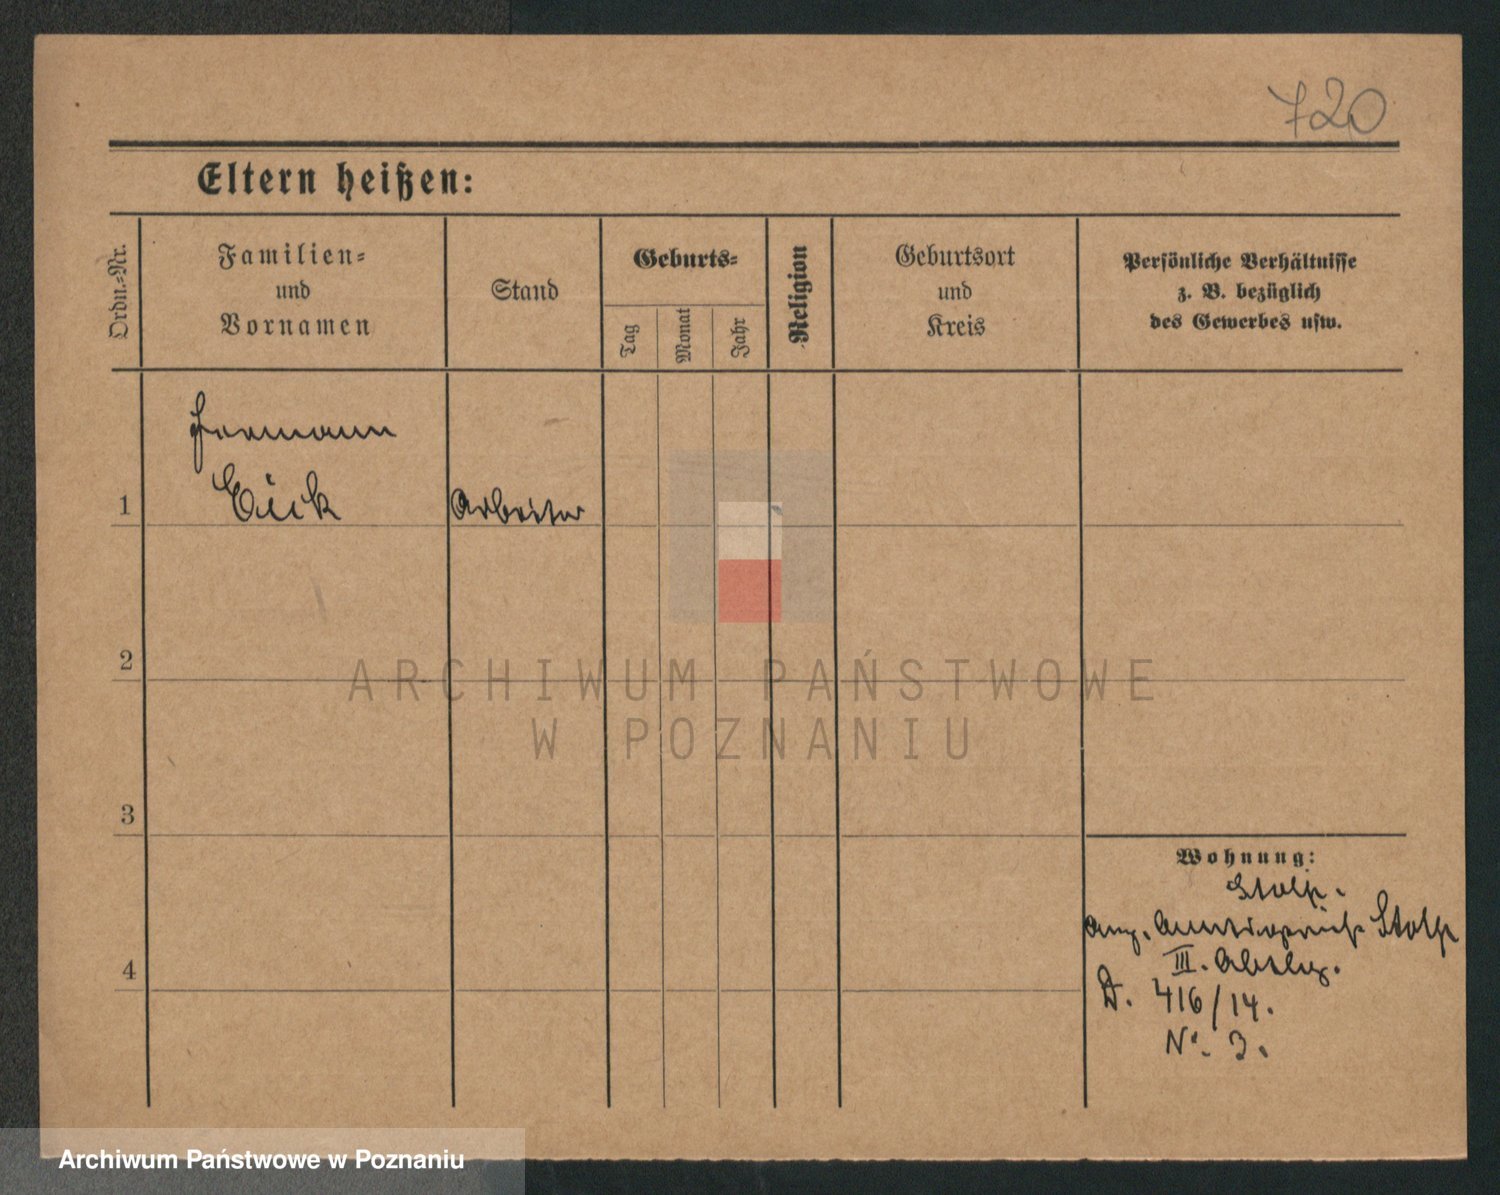 720
Eltern heißen:
Ordn.-Nr.
Familien-
und
Vornamen
Stand
Geburts-
Tag
Monat
Jahr
Religion
Geburtsort
und
Kreis
Persönliche Verhältnisse
z. B. bezüglich
des Gewerbes usw.
Hermann
1 Eick Arbeiter
2
3
4
Wohnung:
Stolp.
Ang. Amtsgericht Stolp
III. Abtlg.
D. 416/14.
No. 3.
ARCHIWUM PAŃSTWOWE
W POZNANIU
Archiwum Państwowe w Poznaniu